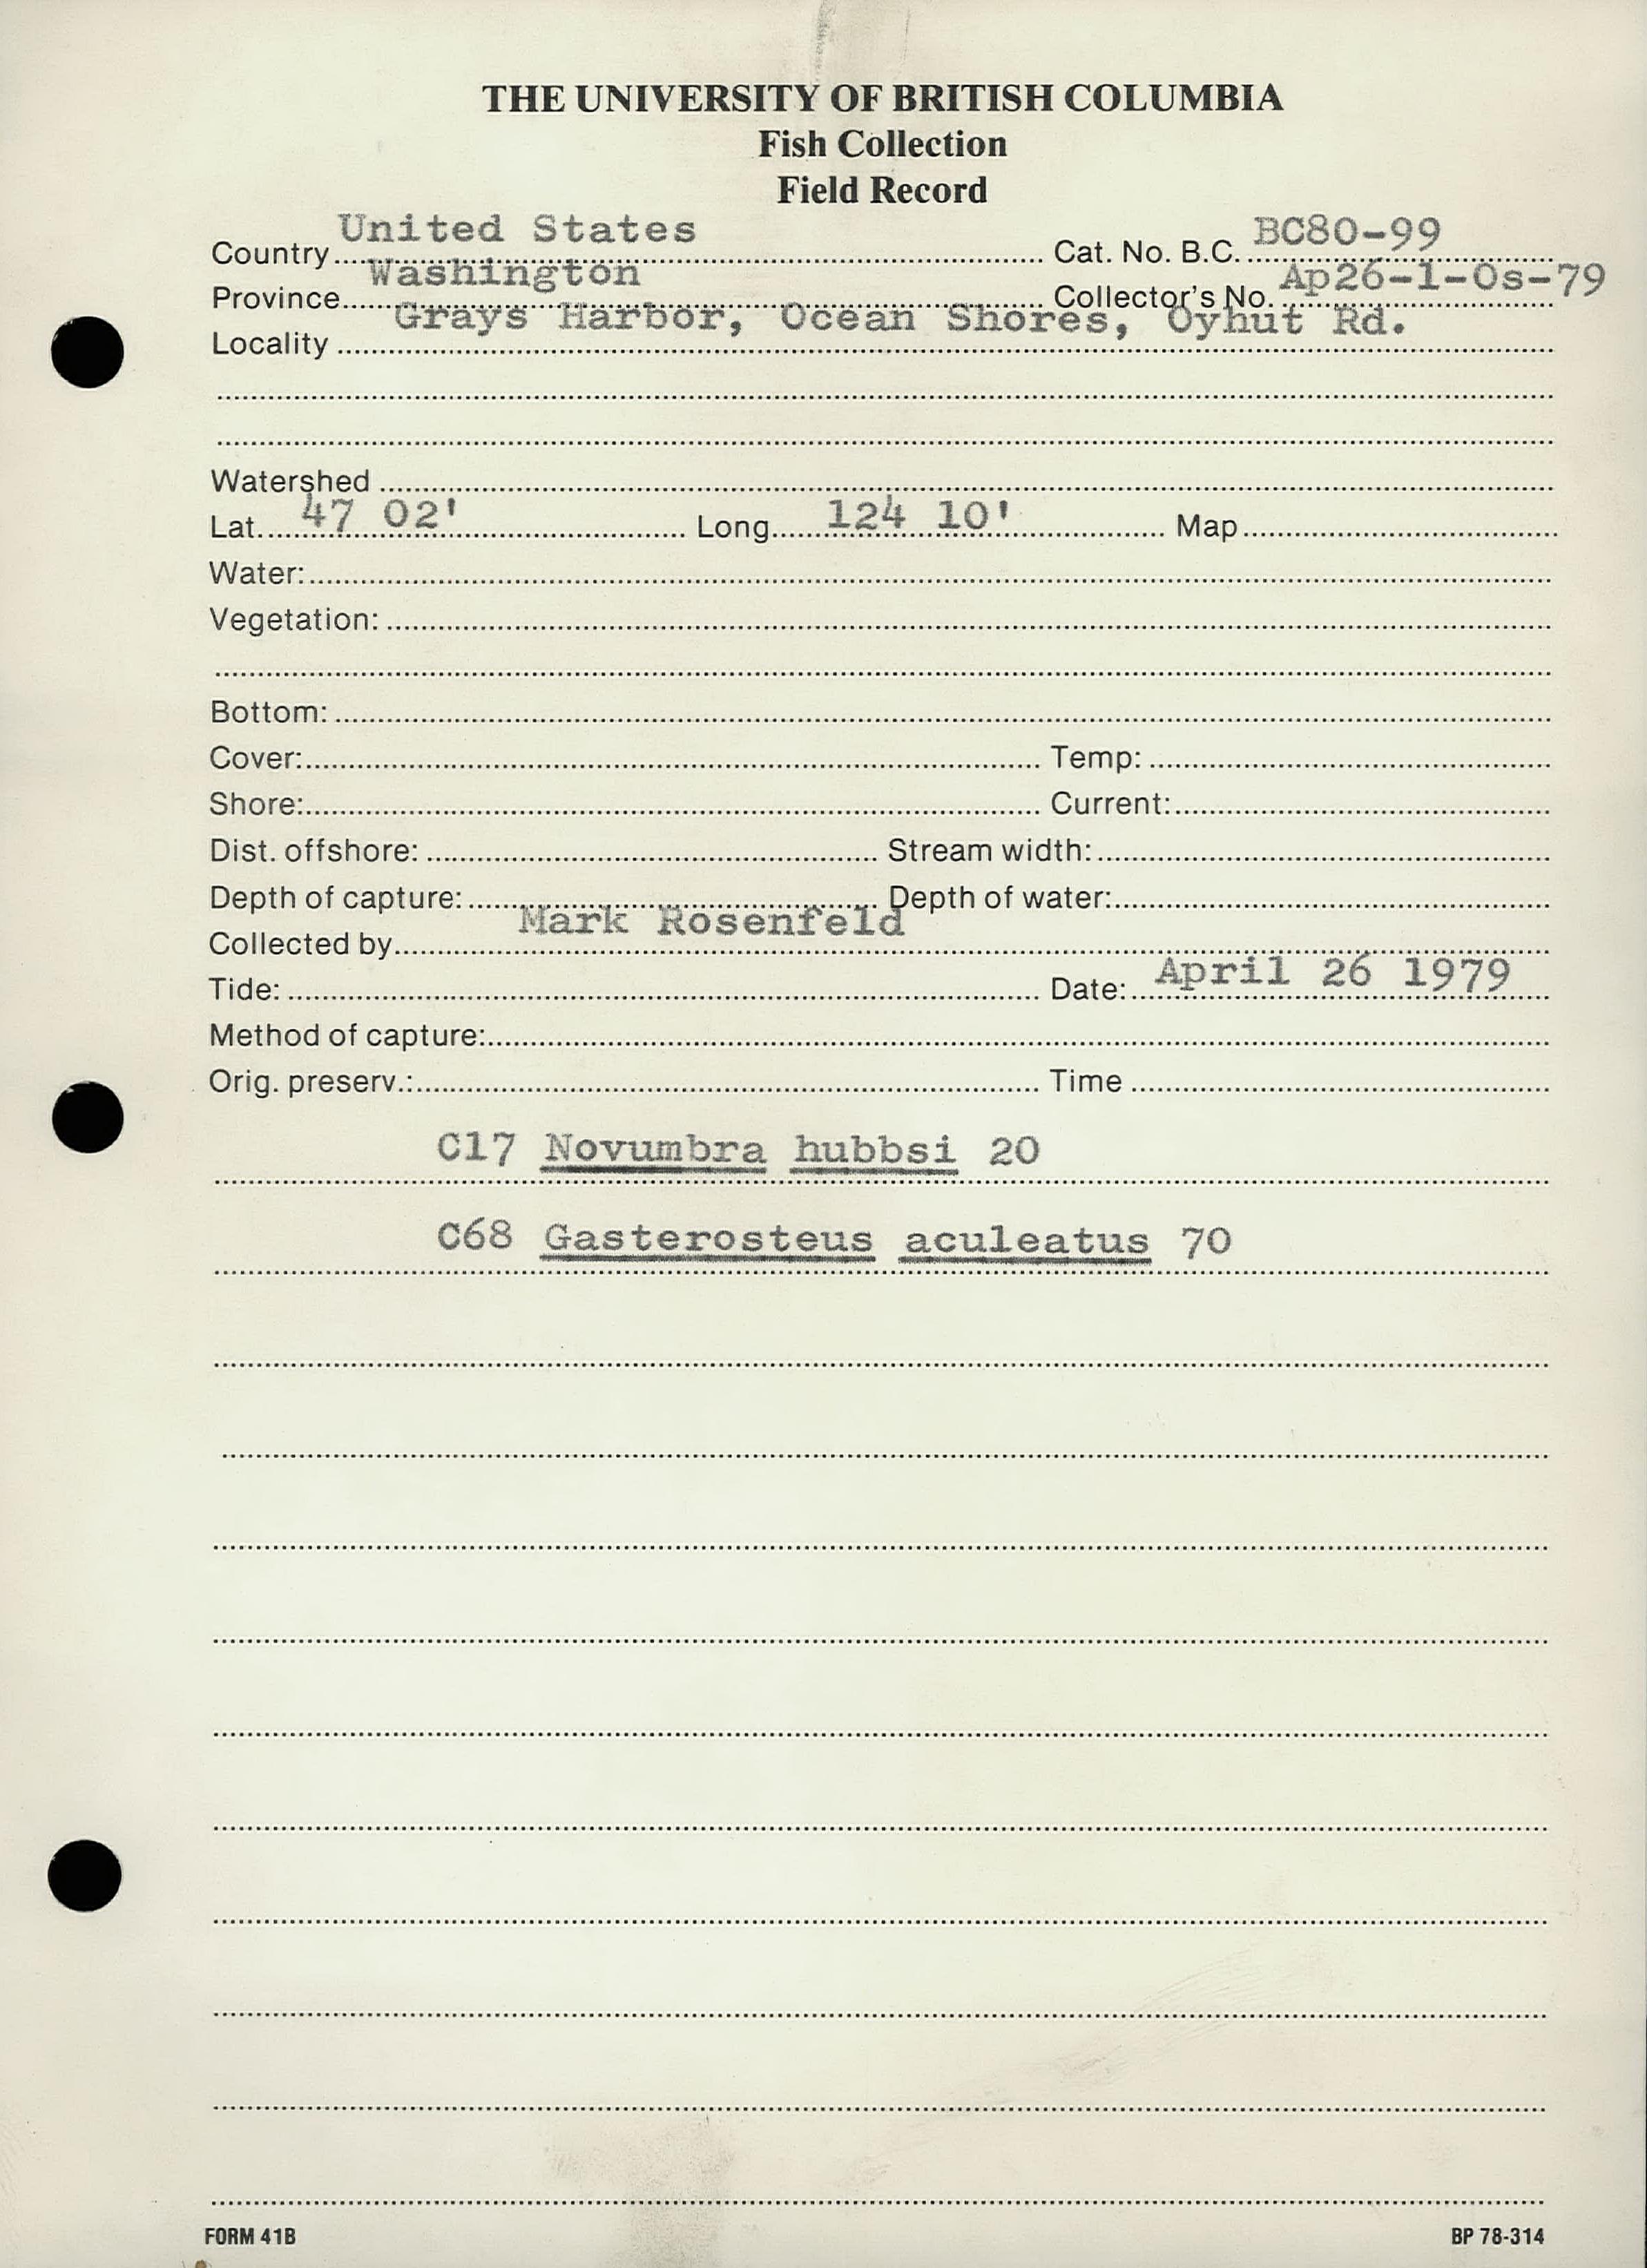 THE UNIVERSITY OF BRITISH COLUMBIA
Fish Collection
Field Record
Country United States Cat. No. B.C. BC80-99
Province Washington Collector's No. Ap26-1-Os-79
Locality Grays Harbor, Ocean Shores, Oyhut Rd.
Watershed
Lat. 47 02' Long. 124 10' Map
Water:
Vegetation:
Bottom:
Cover: Temp:
Shore: Current:
Dist. offshore: Stream width:
Depth of capture: Depth of water:
Collected by Mark Rosenfeld
Tide: Date: April 26 1979
Method of capture:
Orig. preserv.: Time
C17 Novumbra hubbsi 20
C68 Gasterosteus aculeatus 70
FORM 41B BP 78-314